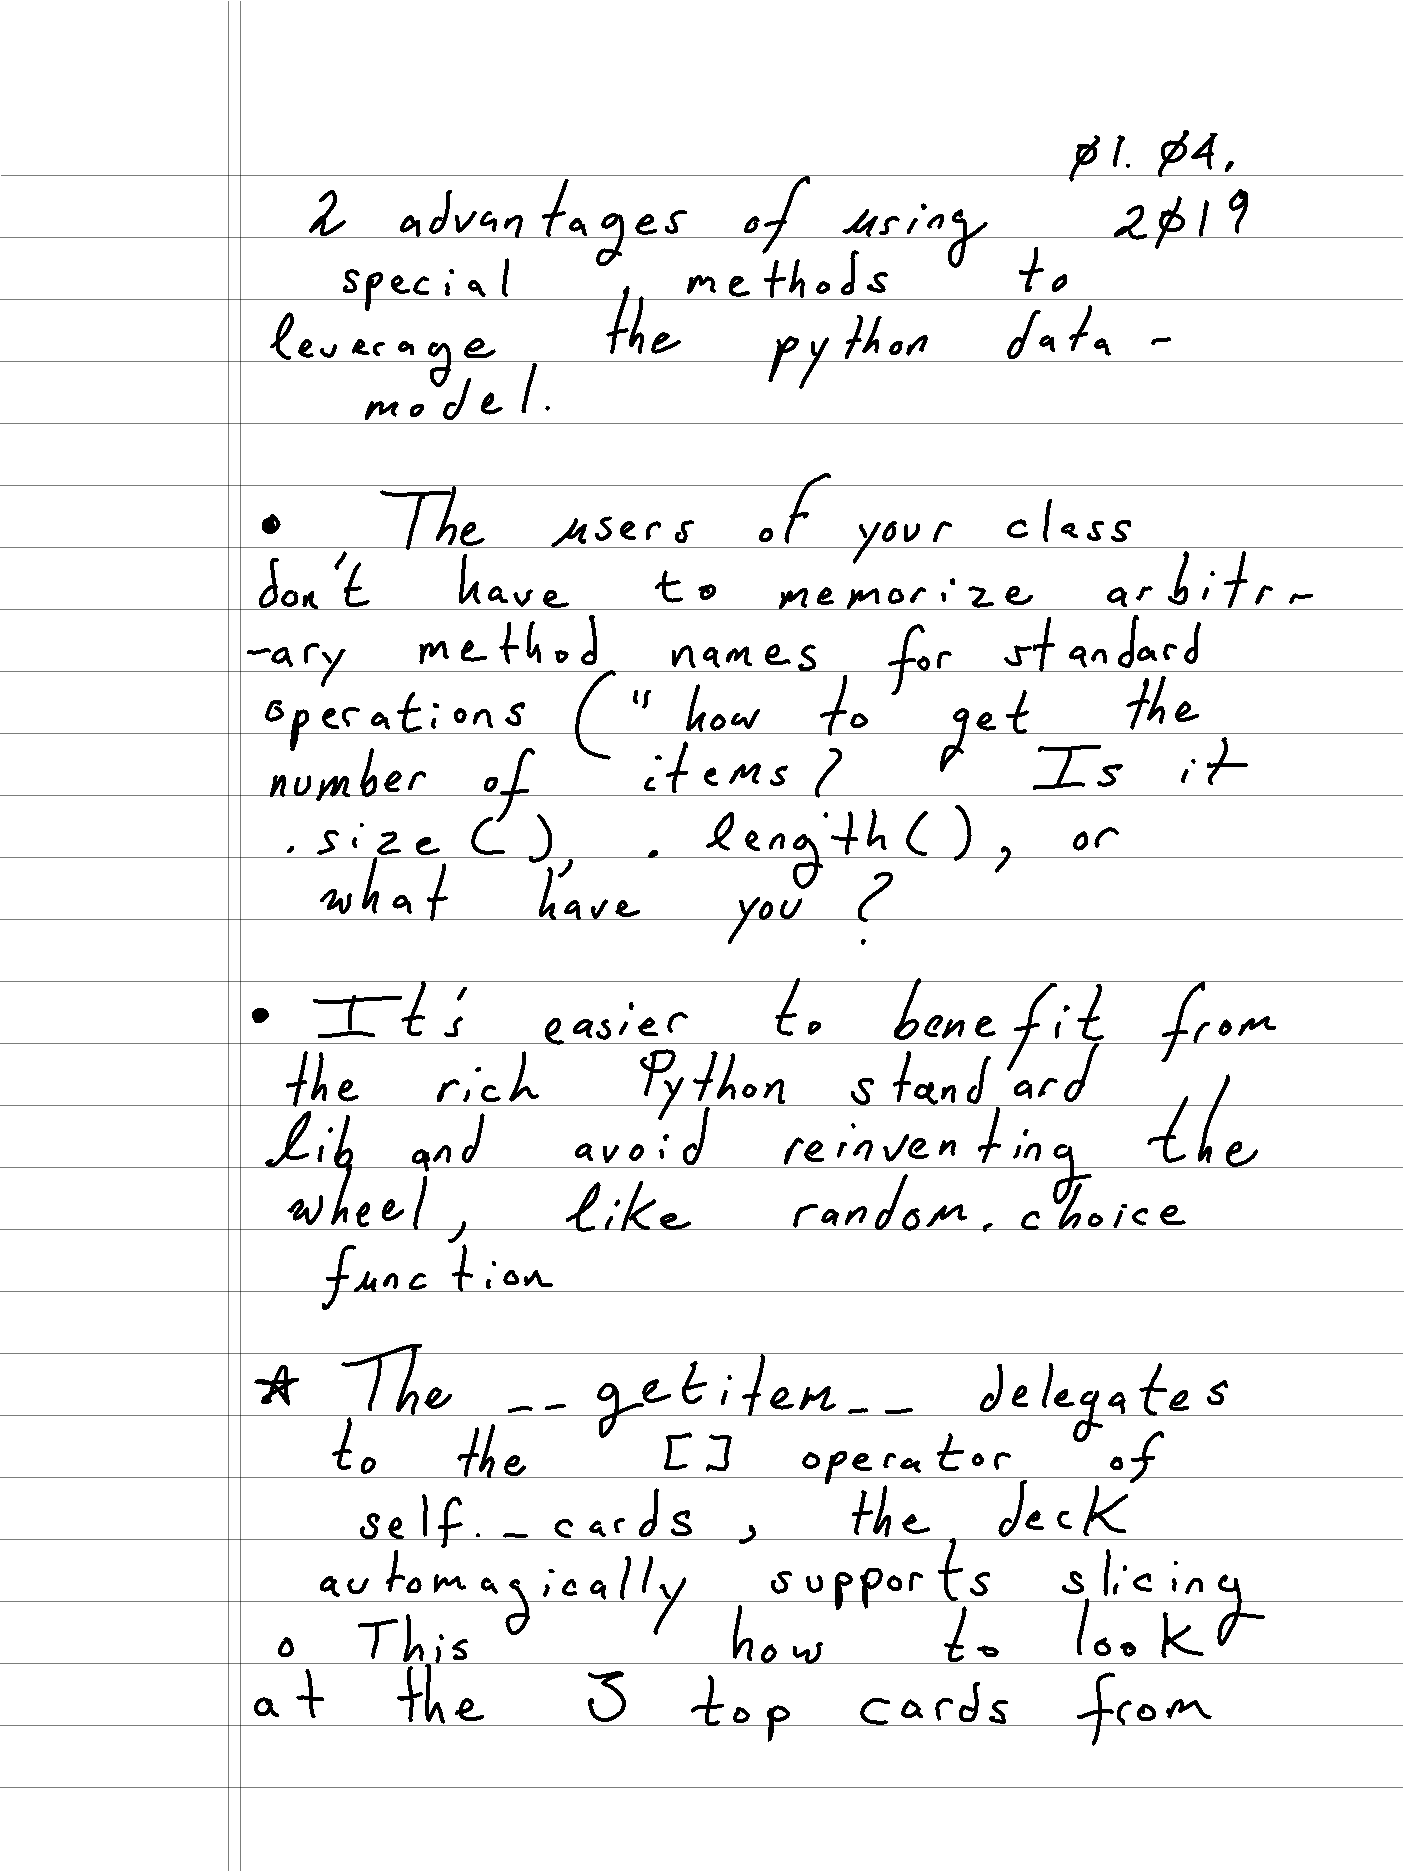 01. 04.
2 advantages of using 2019
special methods to
leverage the python data -
model.
• The users of your class
don't have to memorize arbitr-
-ary method names for standard
operations ( " how to get the
number of items? Is it
. size ( ), . length ( ), or
what have you ?
• It's easier to benefit from
the rich Python standard
lib and avoid reinventing the
wheel, like random. choice
function
☆ The __getitem__ delegates
to the [] operator of
self._cards, the deck
automagically supports slicing
o This how to look
at the 3 top cards from